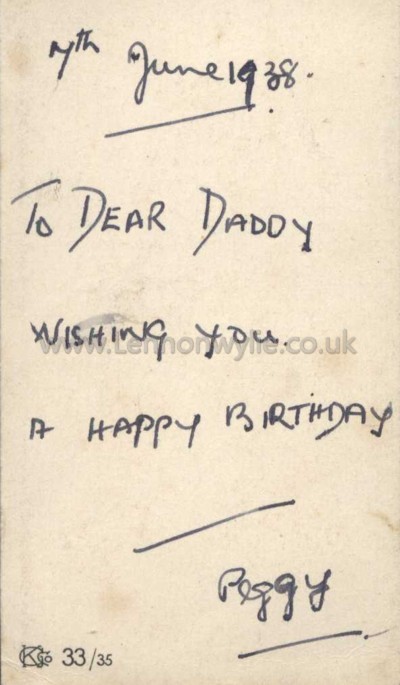 7th June 1938.
To DEAR DADDY
WISHING YOU.
www.Lennonwylie.co.uk
A HAPPY BIRTHDAY
Peggy
CK Co 33/35